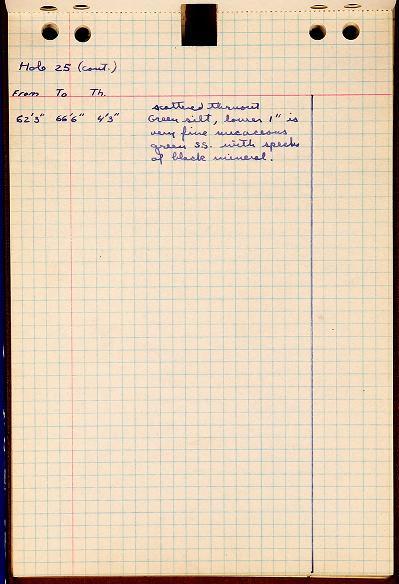 Hole 25 (cont.)
From To Th.
scattered thruout
62'3" 66'6" 4'3" Green silt, lower 1" is
very fine micaceous
green ss. with specks
of black mineral.